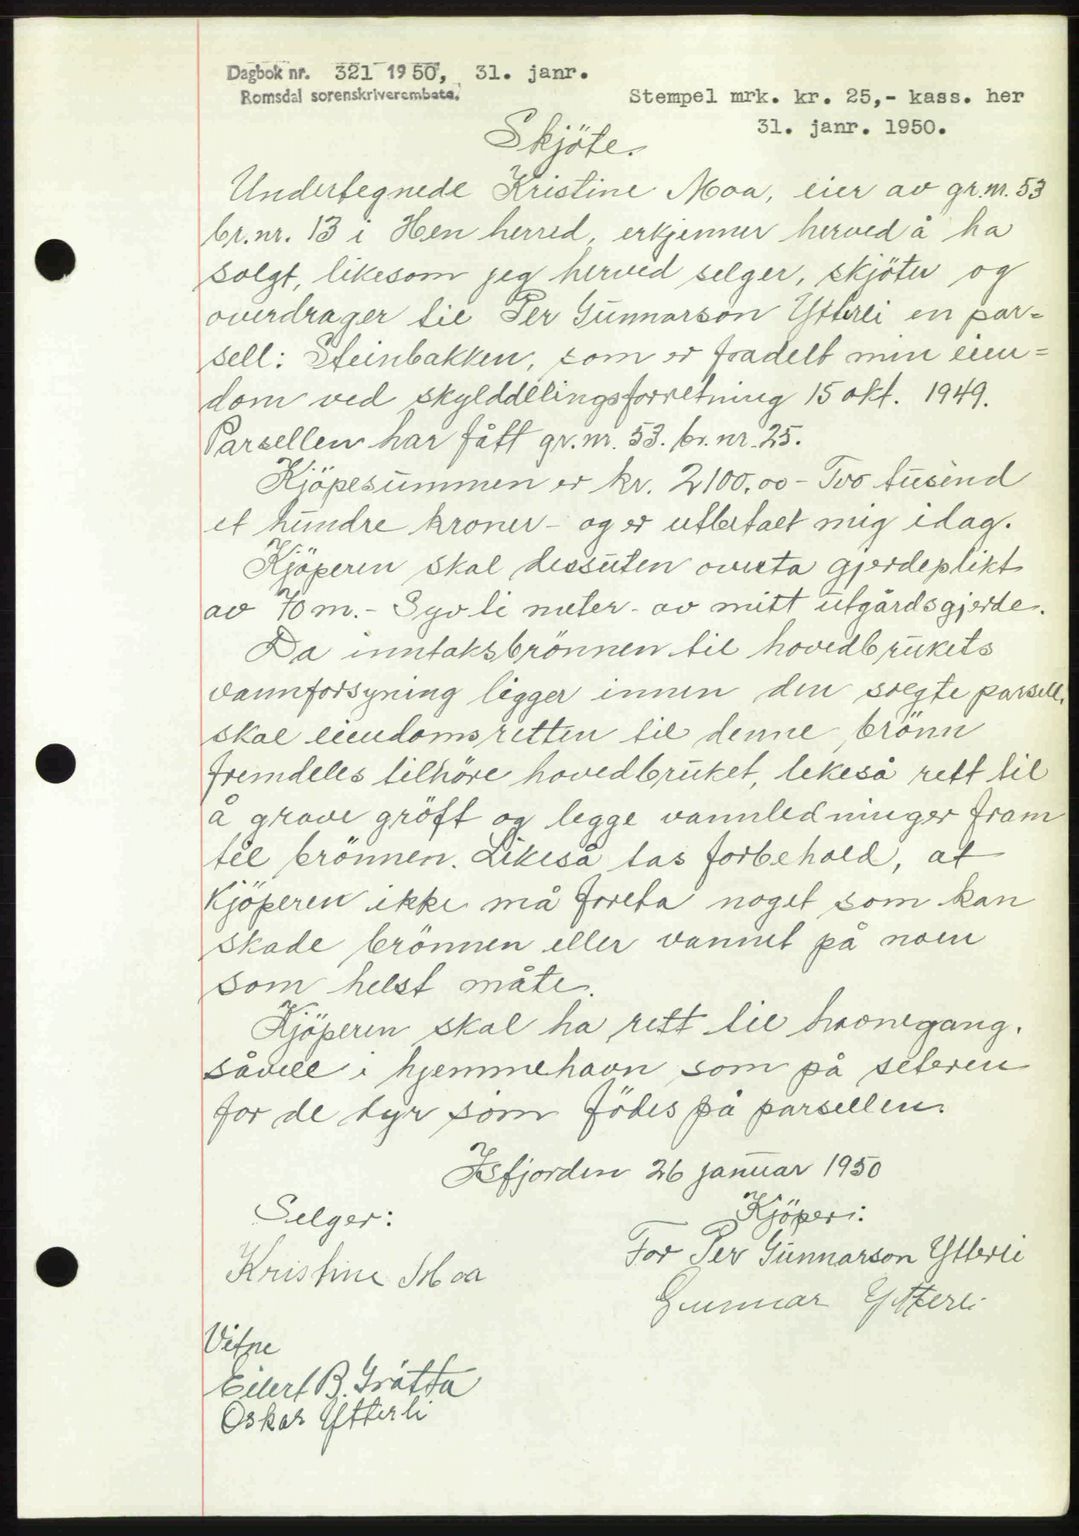 Dagbok nr. 321 1950, 31. janr.
Romsdal sorenskriverembete.
Stempel mrk. kr. 25,- kass. her
31. janr. 1950.
Skjöte.
Undertegnede Kristine Moa, eier av gr.nr. 53
br.nr. 13 i Hen herred, erkjenner herved å ha
solgt, likesom jeg herved selger, skjöter og
overdrager til Per Gunnarson Ytterli en par=
sell: Steinbakken, som er fradelt min eien=
dom ved skylddelingsforretning 15 okt. 1949.
Parsellen har fått gr.nr. 53. br.nr. 25.
Kjöpesummen er kr. 2100.00 - Tvo tusend
et hundre kroner - og er utbetalt mig idag.
Kjöperen skal dessuten overta gjerdeplikt
av 70 m. - Syv ti meter - av mitt utgårdsgjerde.
Da inntaksbrönnen til hovedbrukets
vannforsyning ligger innen den solgte parsell,
skal eiendomsretten til denne brönn
fremdeles tilhöre hovedbruket, lekeså rett til
å grave gröft og legge vannledninger fram
til brönnen. Likeså tas forbehold, at
Kjöperen ikke må foreta noget som kan
skade brönnen eller vannet på noen
som helst måte.
Kjöperen skal ha rett til havnegang,
såvell i hjemmehavn som på seteren
for de dyr som födes på parsellen.
Isfjorden 26 januar 1950
Selger:
Kjöper:
Kristine Moa
For Per Gunnarson Ytterli
Gunnar Ytterli
Vitne
Eilert B. Gråtta
Oskar Ytterli